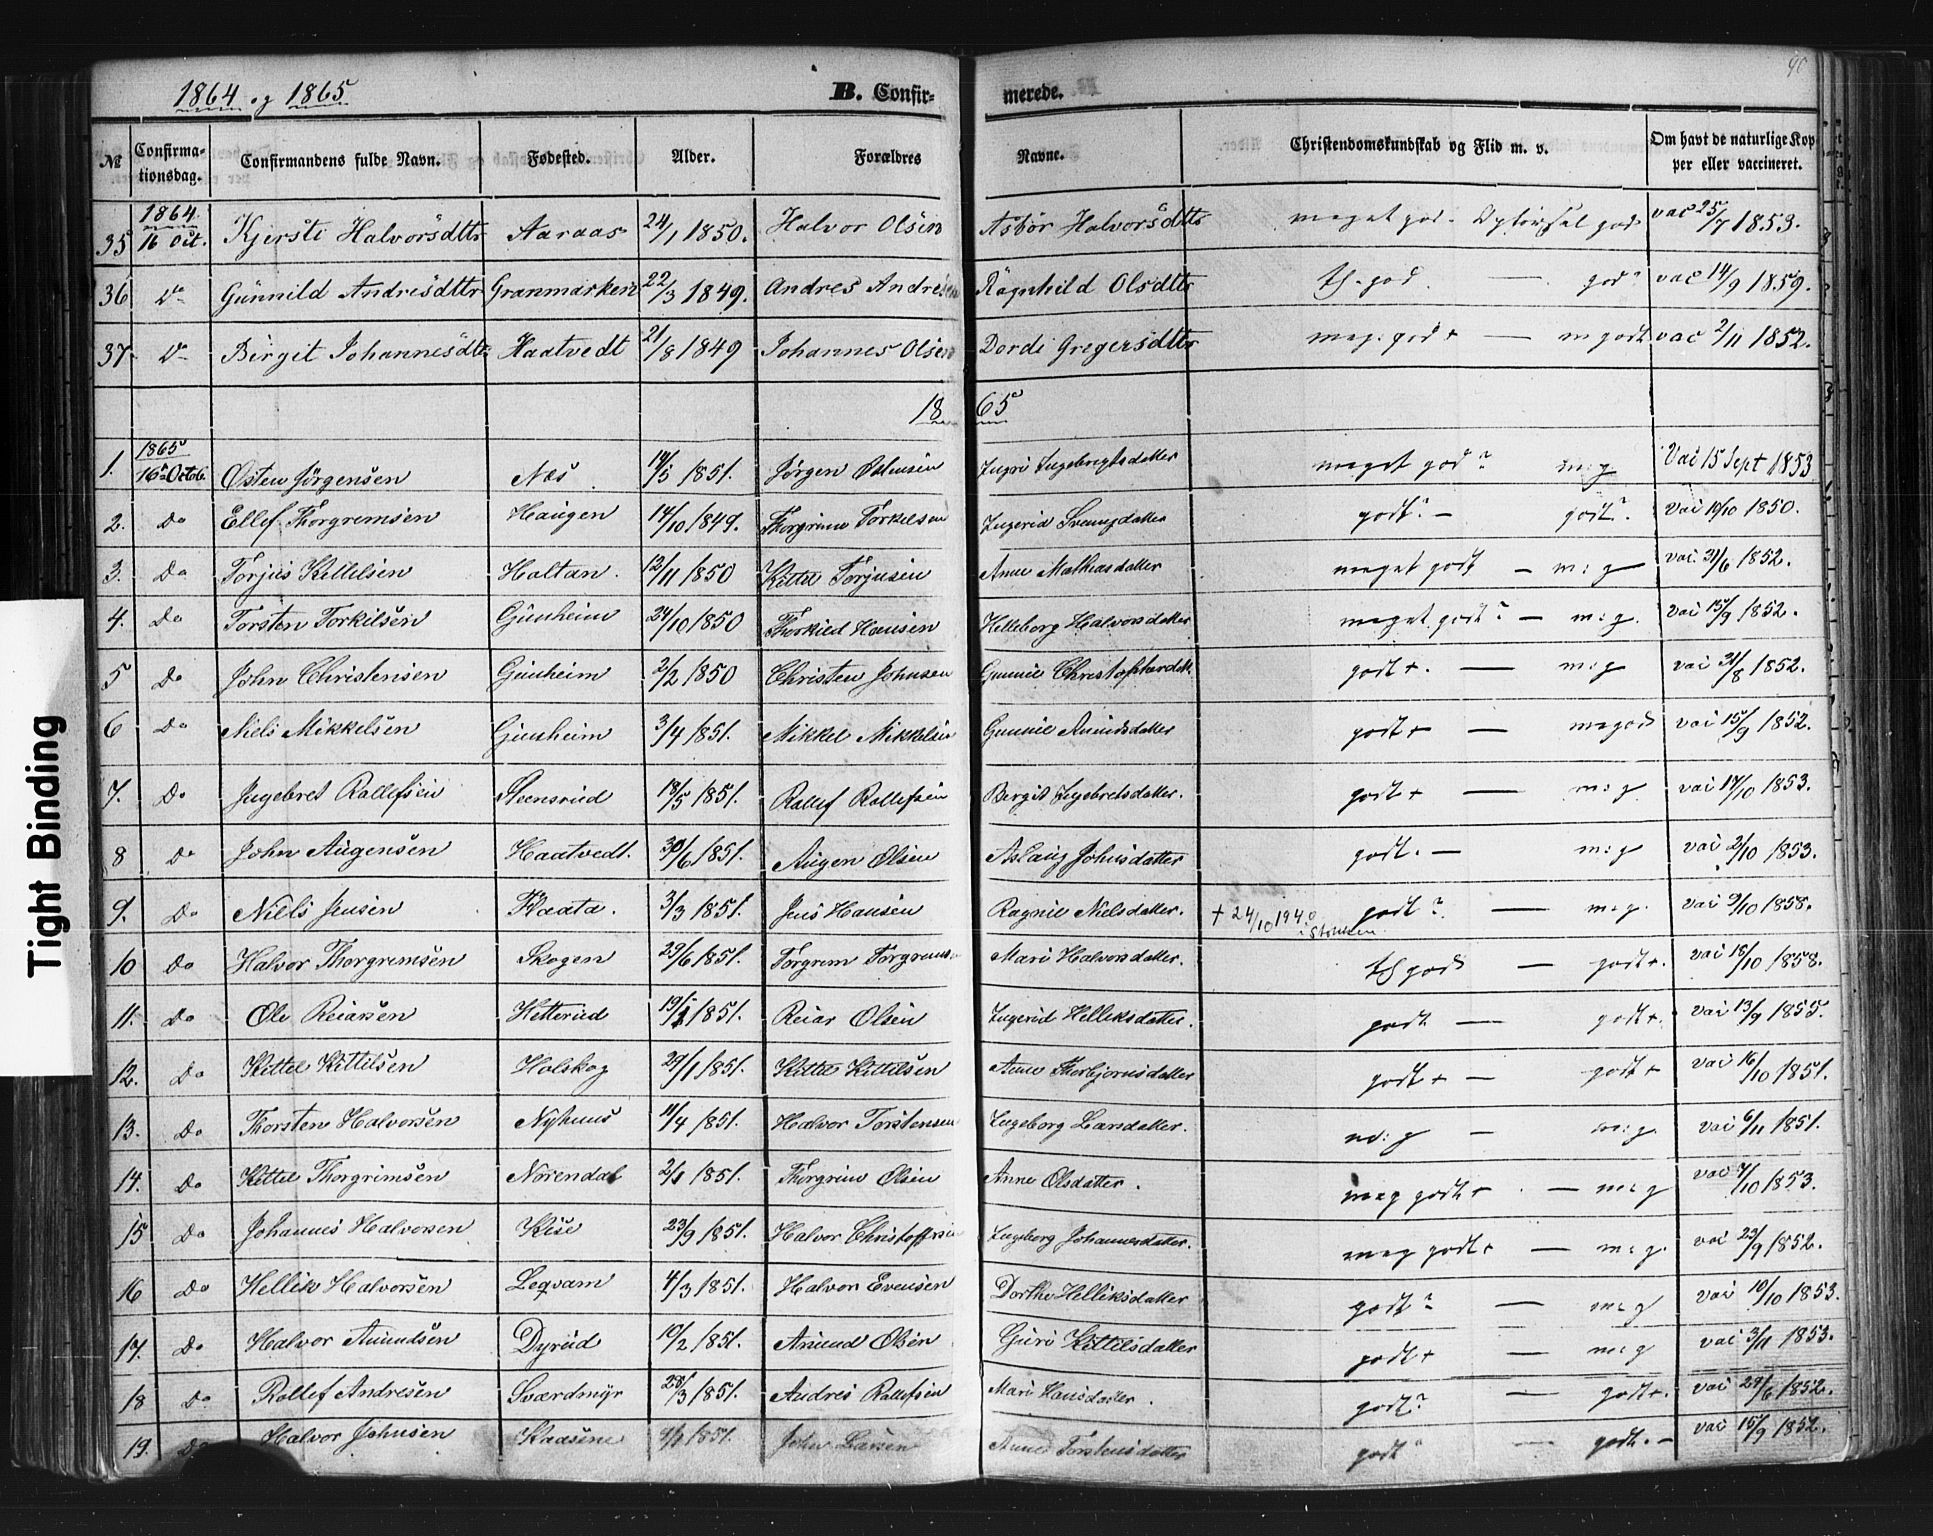 1864 og 1865 B. Confir- merede. 90
№ Confirma- tionsdag. Confirmandens fulde Navn. Fødested. Alder. Forældres Navne. Christendomskundskab og Flid m. v. Om havt de naturlige Kop- per eller vaccineret.
35 1864. 16 Oct. Kjersti Halvorsdttr Aaraas 24/1 1850. Halvor Olsen Asbør Halvorsdttr meget god. god vac 25/7 1853.
36 Do Gunnild Andresdttr Granmarken 22/3 1849. Andres Andresen Ragnhild Olsdttr tf. god. — god? vac 14/9 1859.
37 Do Birgit Johannesdtr Haatvedt 21/8 1849 Johannes Olsen Dordi Gregersdttr meg: god + — m godt vac 2/11 1852.
1865
1. 1865 16de Octob. Østen Jørgensen Næs 14/5 1851. Jørgen Østensen Ingri Ingebregtsdatter meget god? m: g Vac 15 Sept 1853
2. Do Ellef Thorgremsen Haugen 14/10 1849. Thorgrim Torkelsen Ingerid datter godt? — godt? vac 19/10 1850.
3. Do Torjus Kittelsen Holtan. 12/11 1850 Kittel Torjusen Anne Mathiasdatter meget godt — m: g vac 31/6 1852.
4. Do Torsten Torkilsen Gunheim 24/10 1850 Thorkild Hansen Helleborg Halvorsdatter meget godt? — m: g. vac 15/9 1852.
5 Do John Christensen Gunheim 2/2 1850 Christen Johnsen Gunnil Christophersdatt godt +. — m: g vac 31/8 1852.
6 Do Niels Mikkelsen Gunheim 3/4 1851. Mikkel Mikkelsen Gunnil Amundsdatter godt + — m: god vac 15/9 1852.
7. Do Ingebret Rollefsen Steensrud 18/5 1851. Rollef Rollefsen Bergit Ingebretsdatter. godt + — m: g vac 17/10 1853.
8 Do John Augensen Haatvedt. 30/6 1851. Augen Olsen Aslaug Johnsdatter godt. — m: g vac 2/10 1853.
9. Do Niels Jensen Flaata. 3/3 1851. Jens Hansen Ragnil Nielsdatter. + 24/10 1940 i godt? — m: g. vac 9/10 1858.
10 Do Halvor Thorgremsen Skogen 29/6 1851. Torgrem Torgremsen Mari Halvorsdatter. tf god — godt +. vac 18/10 1858.
11. Do Ole Reiarsen Hetterud 19/1 1851. Reiar Olsen Ingerid Helliksdatter. godt — godt +. vac 13/9 1855.
12. Do Kittel Kittilsen Holskog 29/1 1851. Kittel Kittilsen Anne Thorbjørnsdatter godt + — godt + vac 16/10 1851.
13. Do Thorsten Halvorsen Nyhuus 11/4 1851. Halvor Torstensen Ingeborg Larsdatter. m: g — m: g. vac 6/11 1851.
14. Do Kittel Thorgrimsen Norendal 2/1 1851. Thorgrim Olsen Anne Olsdatter. meg godt + — m: g vac 7/10 1853.
15 Do Johannes Halvorsen Kise 23/9 1851. Halvor Christoffersen Ingeborg Johannesdatter. meg godt + — m: g. vac 23/9 1852.
16 Do Hellik Halvorsen Leqvam 4/3 1851. Halvor Evensen Dorthe Helliksdatter godt? — m: g vac 10/10 1853.
17. Do Halvor Amundsen Dyrud 10/2 1851. Amund Olsen Guri Kittilsdatter godt + — m: g vac 3/11 1853.
18 Do Rollef Andresen Sværdmyr 28/3 1851. Andres Rollefsen Mari Hansdatter. godt? — godt +. vac 29/6 1852.
19. Do Halvor Johnsen Kaasene 1851. John Larsen Anne Torstensdatter godt — godt. — vac 15/9 1852.
Tight Binding